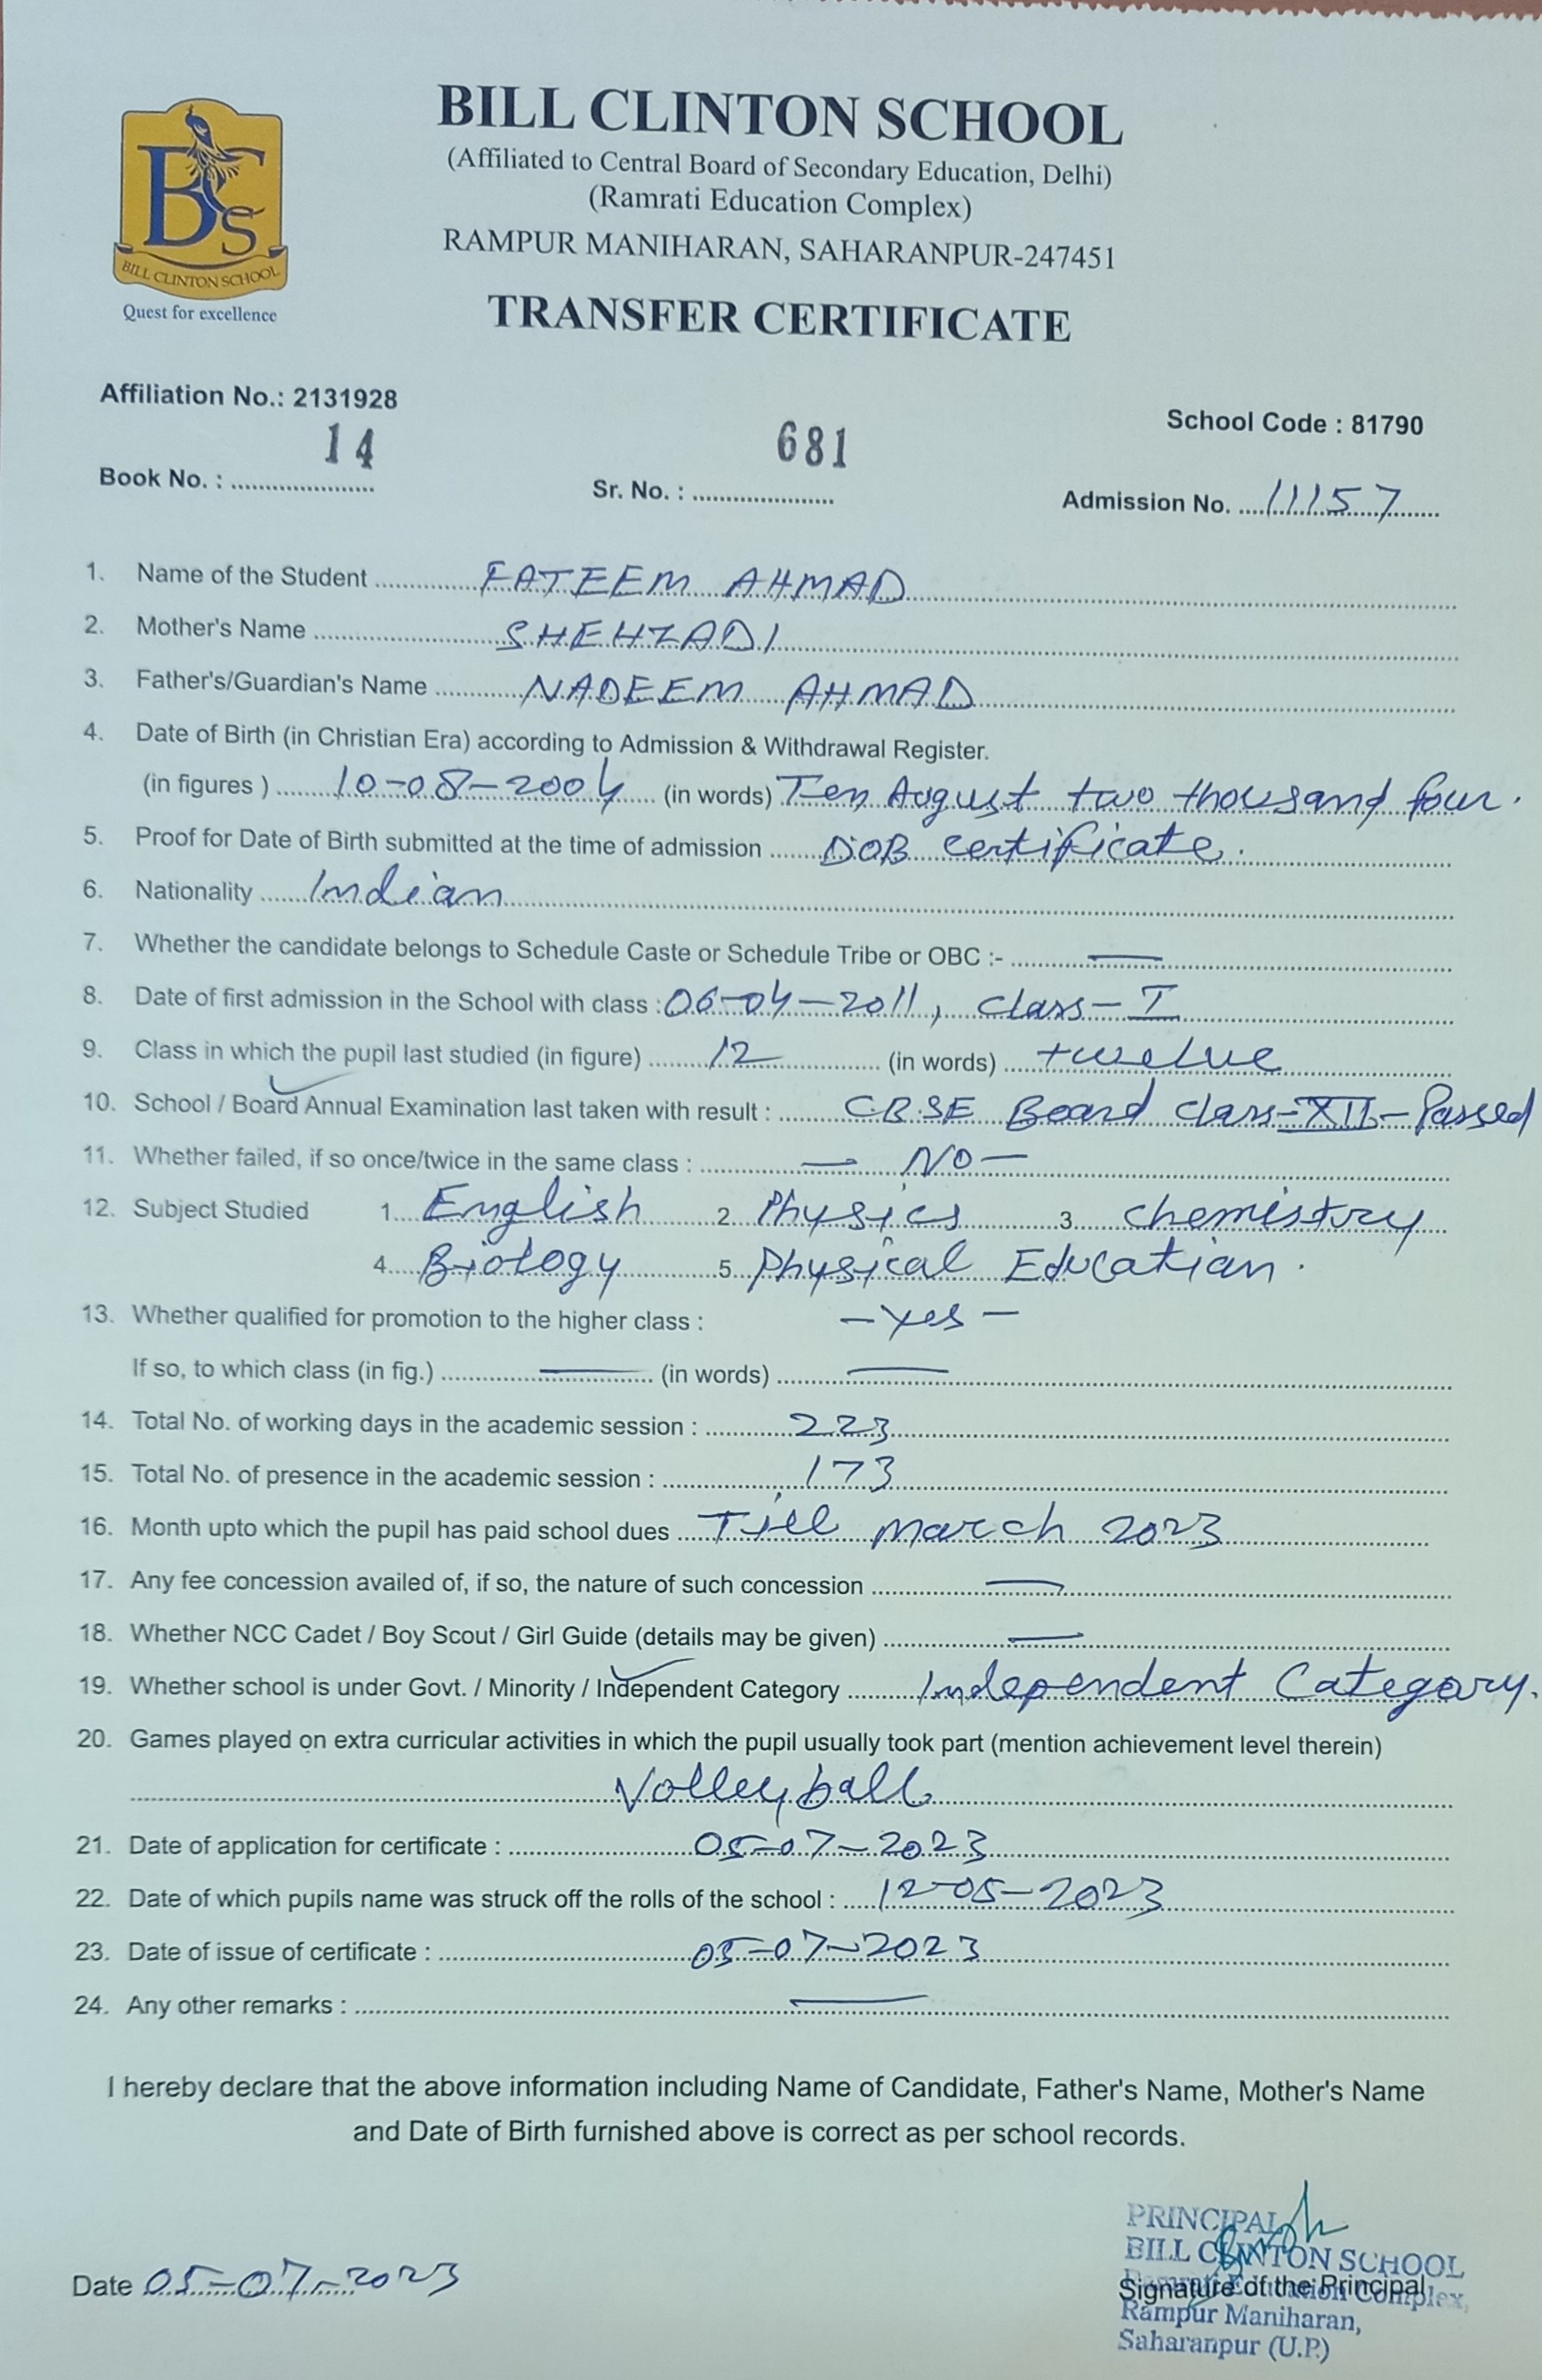 BILL CLINTON SCHOOL
(Affiliated to Central Board of Secondary Education, Delhi)
(Ramrati Education Complex)
RAMPUR MANIHARAN, SAHARANPUR-247451
BCS
BILL CLINTON SCHOOL
Quest for excellence
TRANSFER CERTIFICATE
Affiliation No.: 2131928
School Code : 81790
Book No. : 14 Sr. No. : 681 Admission No. 11157
1. Name of the Student FATEEM AHMAD
2. Mother's Name SHEHZADI
3. Father's/Guardian's Name NADEEM AHMAD
4. Date of Birth (in Christian Era) according to Admission & Withdrawal Register.
(in figures ) 10-08-2004 (in words) Ten August two thousand four.
5. Proof for Date of Birth submitted at the time of admission DOB certificate.
6. Nationality Indian
7. Whether the candidate belongs to Schedule Caste or Schedule Tribe or OBC :- —
8. Date of first admission in the School with class : 06-04-2011, class-I
9. Class in which the pupil last studied (in figure) 12 (in words) twelve
10. School / Board Annual Examination last taken with result : C.B.SE Board class-XII-Passed
11. Whether failed, if so once/twice in the same class : — NO —
12. Subject Studied 1. English 2. Physics 3. chemistry
4. Biology 5. Physical Education.
13. Whether qualified for promotion to the higher class : - Yes -
If so, to which class (in fig.) — (in words) —
14. Total No. of working days in the academic session : 223
15. Total No. of presence in the academic session : 173
16. Month upto which the pupil has paid school dues Till march 2023
17. Any fee concession availed of, if so, the nature of such concession —
18. Whether NCC Cadet / Boy Scout / Girl Guide (details may be given) —
19. Whether school is under Govt. / Minority / Independent Category Independent Category.
20. Games played on extra curricular activities in which the pupil usually took part (mention achievement level therein)
Volleyball
21. Date of application for certificate : 05-07-2023
22. Date of which pupils name was struck off the rolls of the school : 12-05-2023
23. Date of issue of certificate : 05-07-2023
24. Any other remarks : —
I hereby declare that the above information including Name of Candidate, Father's Name, Mother's Name
and Date of Birth furnished above is correct as per school records.
Date 05-07-2023
PRINCIPAL
BILL CLINTON SCHOOL
Signature of the Principal
Education Complex,
Rampur Maniharan,
Saharanpur (U.P.)